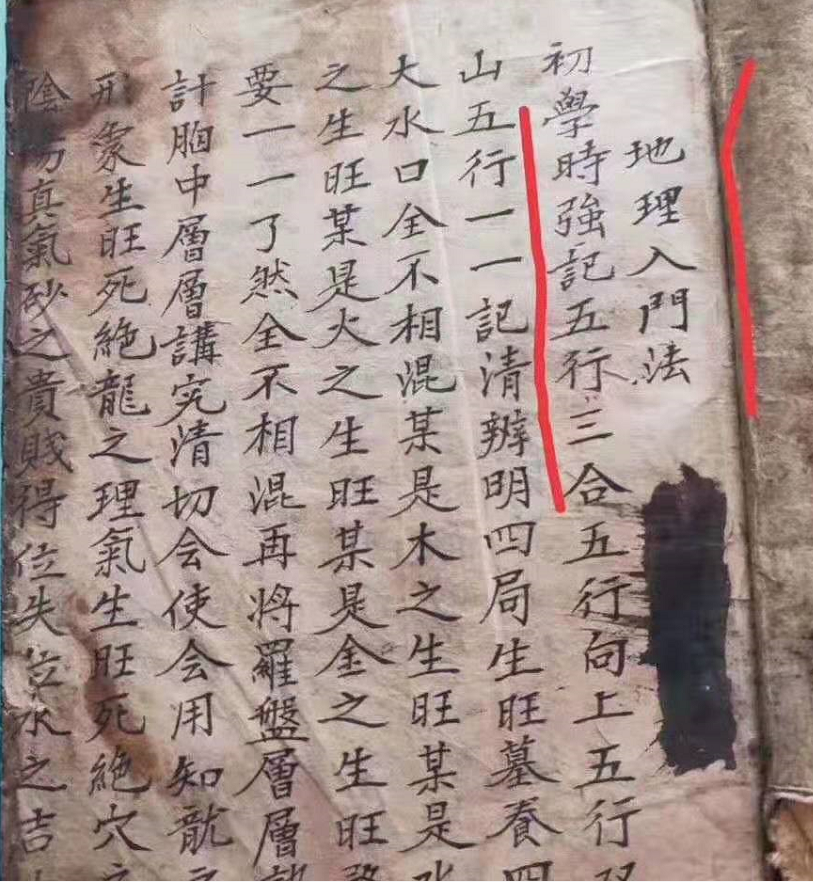 地理入門法
初學時強記五行三合五行向上五行
山五行一一記清辦明四局生旺墓養四
大水口全不相混某是木之生旺某是水
之生旺某是火之生旺某是金之生旺
要一一了然全不相混再將羅盤層層
計胸中層層講究清切会使会用知龍
形象生旺死絕龍之理氣生旺死絕穴之
陰陽真氣砂之貴賤得位失位水之吉